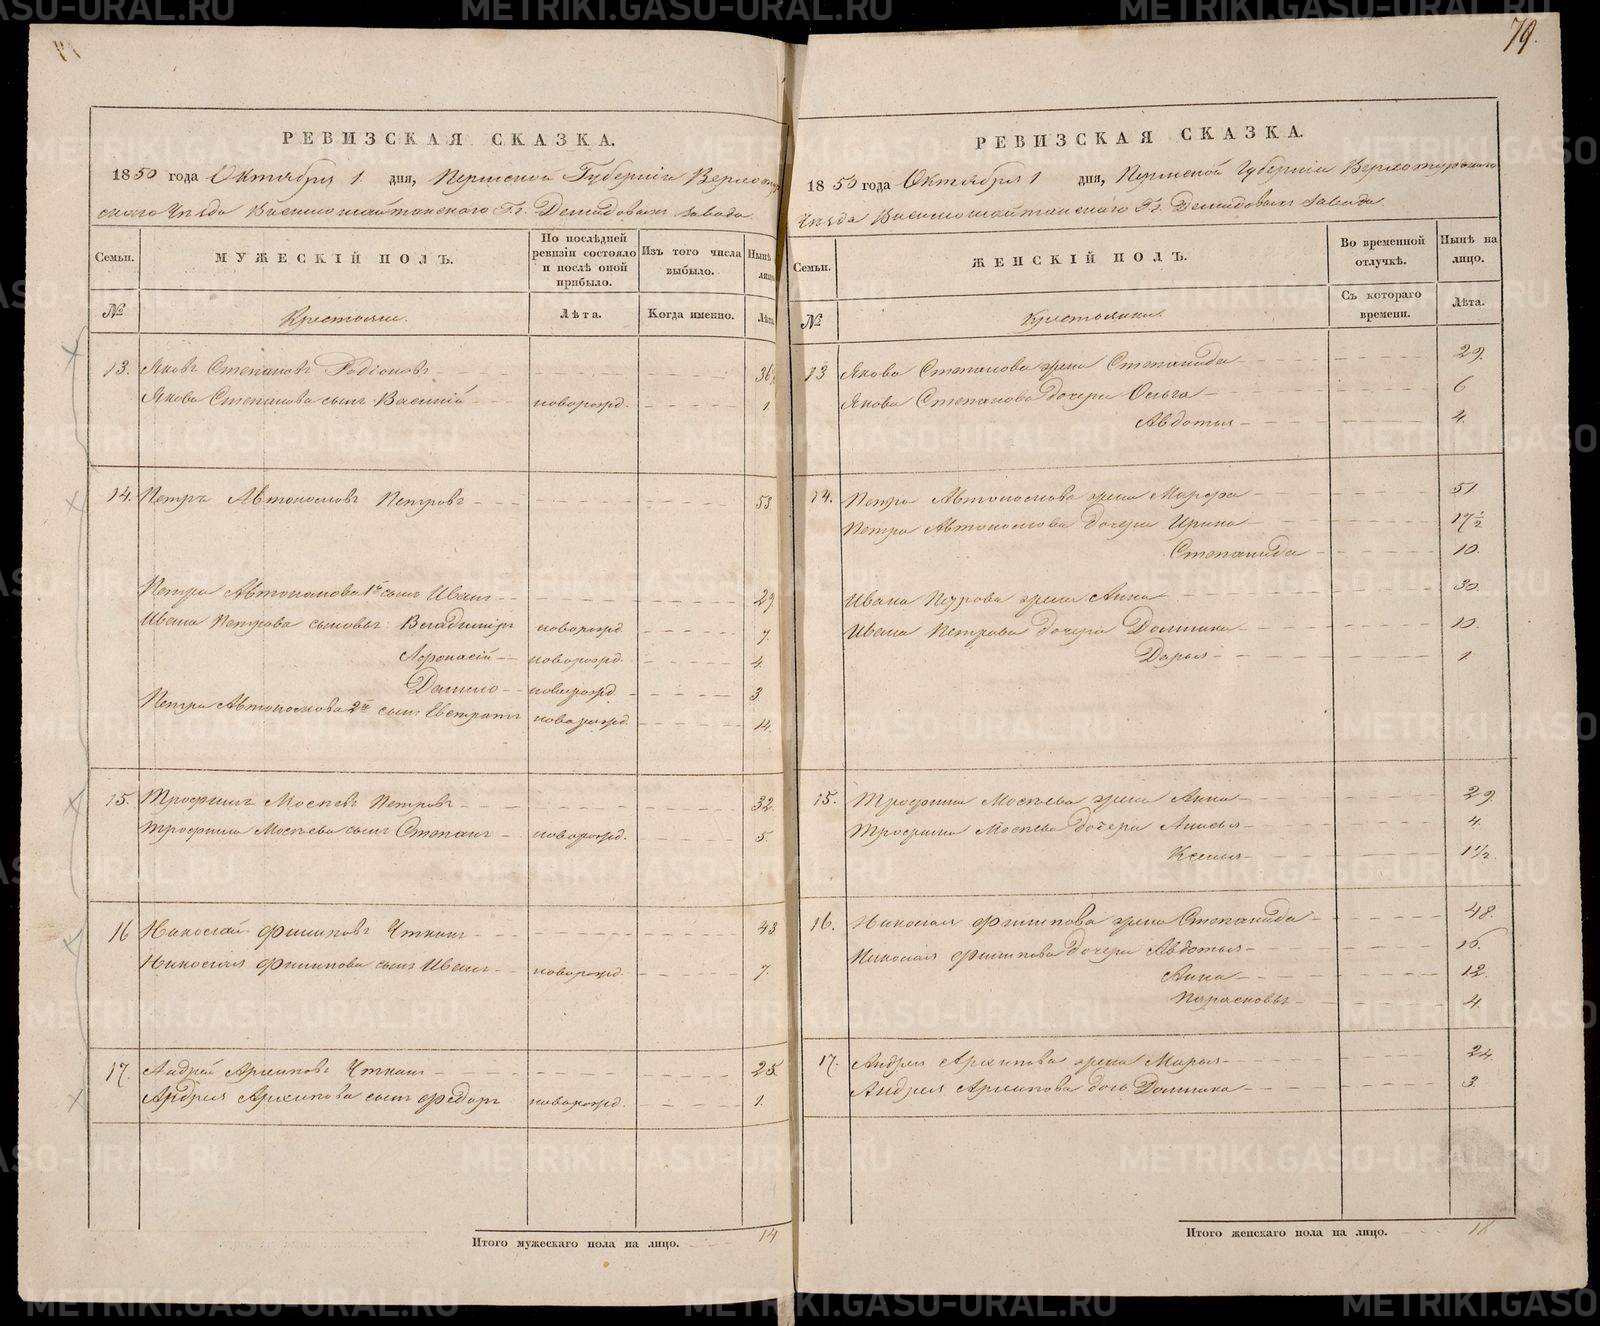 79.
РЕВИЗСКАЯ СКАЗКА.
1850 года Октября 1 дня, Пермской Губерніи Верхотур
скаго Уѣзда Висимошайтанскаго Гг. Демидовыхъ завода
Семьи. МУЖЕСКІЙ ПОЛЪ. По послѣдней ревизіи состояло и послѣ оной прибыло. Изъ того числа выбыло. Нынѣ на лицо.
№ Крестьяне. Лѣта. Когда именно. Лѣта
13. Яковъ Степановъ Родіоновъ 36
Якова Степанова сынъ Василій новорожд. 1
14. Петръ Автономовъ Петровъ 53
Петра Автономова 1й сынъ Иванъ 29
Ивана Петрова сыновья Владиміръ новорожд. 7
Афонасій новорожд. 4
Данило новорожд. 3
Петра Автономова 2й сынъ Евстратъ новорожд. 14
15. Трофимъ Мосѣевъ Петровъ 32
Трофима Мосѣева сынъ Степанъ новорожд. 5
16 Николай Филиповъ Уткинъ 43
Николая Филипова сынъ Иванъ новорожд. 7
17. Андрей Архиповъ Уткинъ 25
Андрея Архипова сынъ Федоръ новорожд. 1
Итого мужескаго пола на лицо. 14
РЕВИЗСКАЯ СКАЗКА.
1850 года Октября 1 дня, Пермской Губерніи Верхотурскаго
Уѣзда Висимошайтанскаго Гг. Демидовыхъ завода
Семьи. ЖЕНСКІЙ ПОЛЪ. Во временной отлучкѣ. Нынѣ на лицо.
№ Крестьянки. Съ котораго времени. Лѣта.
13 Якова Степанова жена Степанида 29
Якова Степанова дочери Ольга 6
Авдотья 4
14. Петра Автономова жена Марфа 51
Петра Автономова дочери Ирина 17½
Степанида 10
Ивана Петрова жена Анна 30
Ивана Петрова дочери Домника 10
Дарья 1
15. Трофима Мосѣева жена Анна 29
Трофима Мосѣева дочери Анисья 4
Ксенья 1½
16. Николая Филипова жена Степанида 48
Николая Филипова дочери Авдотья 16
Анна 12
Парасковья 4
17. Андрея Архипова жена Марья 24
Андрея Архипова дочь Домника 3
Итого женскаго пола на лицо. 18
METRIKI.GASO-URAL.RU